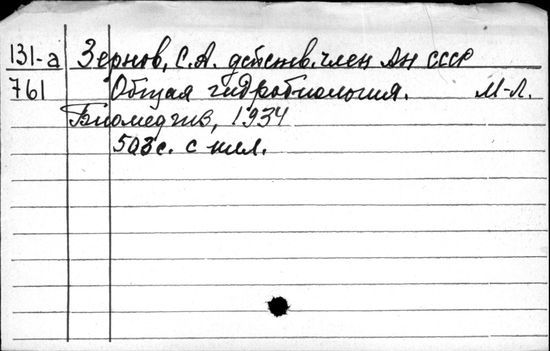 131-а Зернов, С.А. действ. член Ан СССР
761 Общая гидробиология. М-Л.
Биомедгиз, 1934
503 с. с илл.